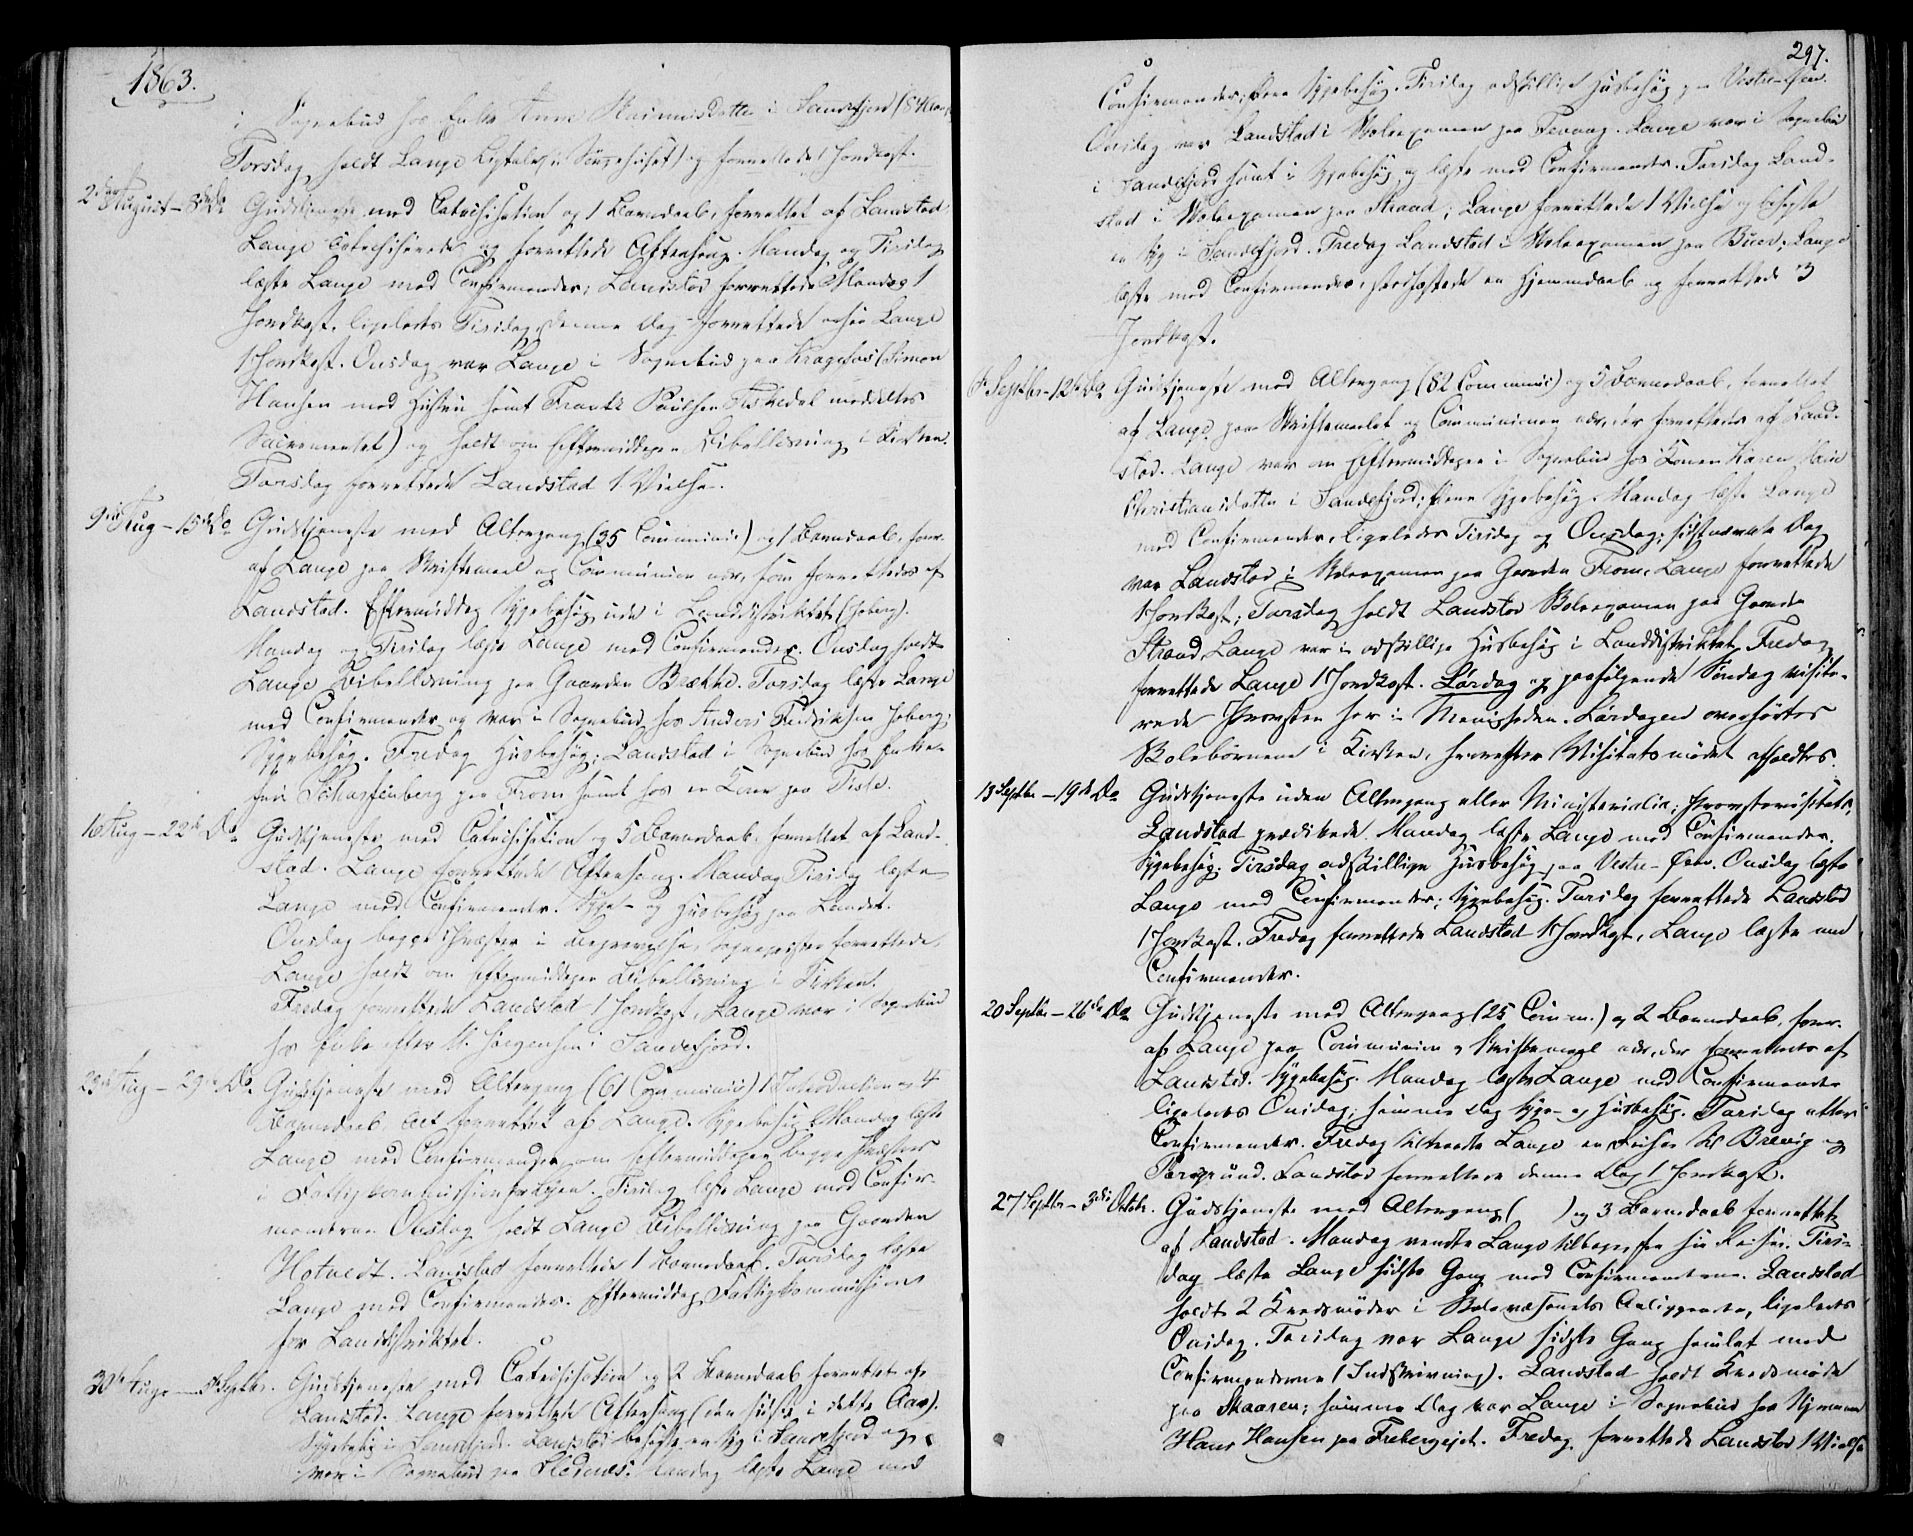 1863.
i Sognebud hos Enke Anne Rasmusdatter i Sandefjord (8
Torsdag holdt Lange Ligtale (i Sørgehuset) og forrettede 1 Jordkast.
2den August - 8de Do Gudstjeneste med Catechisation og 1 Barnedaab, forrettet af Landstad
Lange catechiserede og forrettede Aftensang. Mandag og Tirsdag
læste Lange med Confirmander; Landstad forrettede Mandag 1
Jordkast, ligeledes Tirsdag, denne Dag forrettede ogsaa Lange
1 Jordkast. Onsdag var Lange i Sognebud paa Krageholt (Simon
Hansen med Hustru samt Frantz Paulsen Fiskedal meddeltes
Sacramentet) og holdt om Eftermiddagen Bibellæsning i Kirken.
Torsdag forrettede Landstad 1 Vielse.
9de Aug - 15de Do Gudstjeneste med Altergang (35 Communic) og 1 Barnedaab, forr.
af Lange paa Skriftemaal og Communion nær, som forrettedes af
Landstad. Eftermiddag Sygebesøg ude i Landdistriktet (Joberg).
Mandag og Tirsdag læste Lange med Confirmander. Onsdag holdt
Lange Bibellæsning paa Gaarden Brække. Torsdag læste Lange
med Confirmander og var i Sognebud hos Anders Fredriksen Joberg;
Sygebesøg. Fredag Husbesøg; Landstad i Sognebud hos Enke-
fru Scharffenberg paa From samt hos en Kone paa
16 Aug - 22de Do Gudstjeneste med Catechisation og 5 Barnedaab, forrettet af Land-
stad. Lange forrettede Aftensang. Mandag Tirsdag læste
Lange med Confirmander. Syge- og Husbesøg paa Landet.
Onsdag begge Præster i Begravelse, Sognepresten forrettede,
Lange holdt om Eftermiddagen Bibellæsning i Kirken.
Fredag forrettede Landstad 1 Jordkast, Lange var i Sognebud
hos Enke efter Jørgensen i Sandefjord.
23de Aug - 29de Do Gudstjeneste med Altergang (61 Communic) 1 Introduction og 4
Barnedaab. Alt forrettet af Lange. Sygebesøg. Mandag læste
Lange med Confirmander, om Eftermiddagen begge Præster
i Fattigkommission for Byen. Tirsdag læste Lange med Confir-
manderne. Onsdag holdt Lange Bibellæsning paa Gaarden
Hotvedt. Landstad forrettede 1 Barnedaab. Torsdag læste
Lange med Confirmander. Eftermiddag Fattigkommission
for Landdistriktet.
30te Aug - 5 Septbr. Gudstjeneste med Catechisation og 2 Barnedaab forrettet af
Landstad. Lange forrettede Aftensang (den sidste i dette Aar).
Sygebesøg i Sandefjord. Landstad besøgte en Syg i Sandefjord og
var i Sognebud paa Mandag læste Lange med
297.
Confirmander; flere Sygebesøg. Tirsdag adskillige Husbesøg paa Vestre-Øen.
Onsdag var Landstad i Skoleexamen paa Lange var i Sognebud
i Sandefjord samt i Sygebesøg og læste med Confirmander. Torsdag Land-
stad i Skoleexamen paa Strand; Lange forrettede 1 Vielse og besøgte
en Syg i Sandefjord. Fredag Landstad i Skoleexamen paa Buer; Lange
læste med Confirmander, stadfæstede en Hjemmedaab og forrettede 3
Jordkast.
6 Septbr - 12te Do Gudstjeneste med Altergang (82 Communic) og 5 Barnedaab, forrettet
af Lange paa Skriftemaalet og Communionen nær, der forrettedes af Land-
stad. Lange var om Eftermiddagen i Sognebud hos Konen Karen Marie
Christiansdatter i Sandefjord; flere Sygebesøg. Mandag læste Lange
med Confirmander, ligeledes Tirsdag og Onsdag; sidstnævnte Dag
var Landstad i Skoleexamen paa Gaarden From, Lange forrettede
1 Jordkast; Torsdag holdt Landstad Skoleexamen paa Gaarden
Strand, Lange var i adskillige Husbesøg i Landdistriktet. Fredag
forrettede Lange 1 Jordkast. Lørdag og paafølgende Søndag visite-
rede Provsten her i Menigheden. Lørdagen overhørtes
Skolebørnene i Kirken, hvorefter Visitatsmødet afholdtes.
13 Septbr - 19de Do Gudstjeneste uden Altergang eller Ministerialia; Provstevisitats,
Landstad prædikede. Mandag læste Lange med Confirmander.
Sygebesøg. Tirsdag adskillige Husbesøg paa Vestre-Øen. Onsdag læste
Lange med Confirmander; Sygebesøg. Torsdag forrettede Landstad
1 Jordkast. Fredag forrettede Landstad 1 Jordkast, Lange læste med
Confirmander.
20 Septbr - 26de Do Gudstjeneste med Altergang (25 Comm.) og 2 Barnedaab, forr.
af Lange paa Communion og Skriftemaal nær, der forrettedes af
Landstad. Sygebesøg. Mandag læste Lange med Confirmander
ligeledes Onsdag; samme Dag Syge- og Husbesøg. Torsdag atter
Confirmander. Fredag tiltraadte Lange en Reise til Brevig og
Porsgrund. Landstad forrettede denne Dag 1 Jordkast.
27 Septbr - 3die Octobr. Gudstjeneste med Altergang ( ) og 3 Barnedaab forrettet
af Landstad. Mandag vendte Lange tilbage fra sin Reise. Tirs-
dag læste Lange sidste Gang med Confirmanderne. Landstad
holdt 2 Kredsmøder i Skolevæsenets Anliggender, ligeledes
Onsdag. Torsdag var Lange sidste Gang samlet med
Confirmanderne (Indskrivning). Landstad holdt Kredsmøde
paa Skaaren; samme Dag var Lange i Sognebud hos
Hans Hansen paa Frebergeid. Fredag forrettede Landstad 1 Vielse